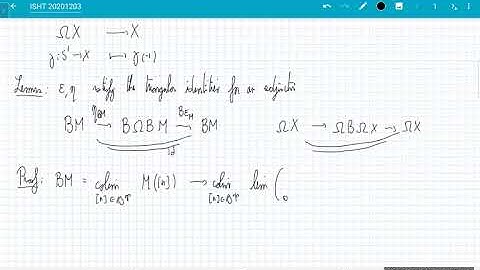 ISHT 20201203
ΩX ⟶ X
γ: S¹ → X ⟼ γ(-1)
Lemma: ε, η satisfy the triangular identities for an adjunction
BM —η_BM→ BΩBM —Bε_M→ BM ΩX → ΩBΩX → ΩX
id
Proof: BM = colim_{[n]∈Δ^op} M([n]) → colim_{[n]∈Δ^op} lim (